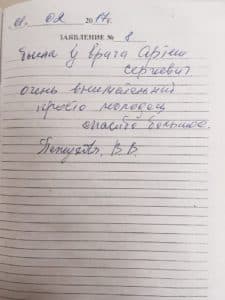 02 2017г.
ЗАЯВЛЕНИЕ № 8
была у врача Артём
Сергеевич
очень внимательний
просто молодец
спасибо большое.
В.В.